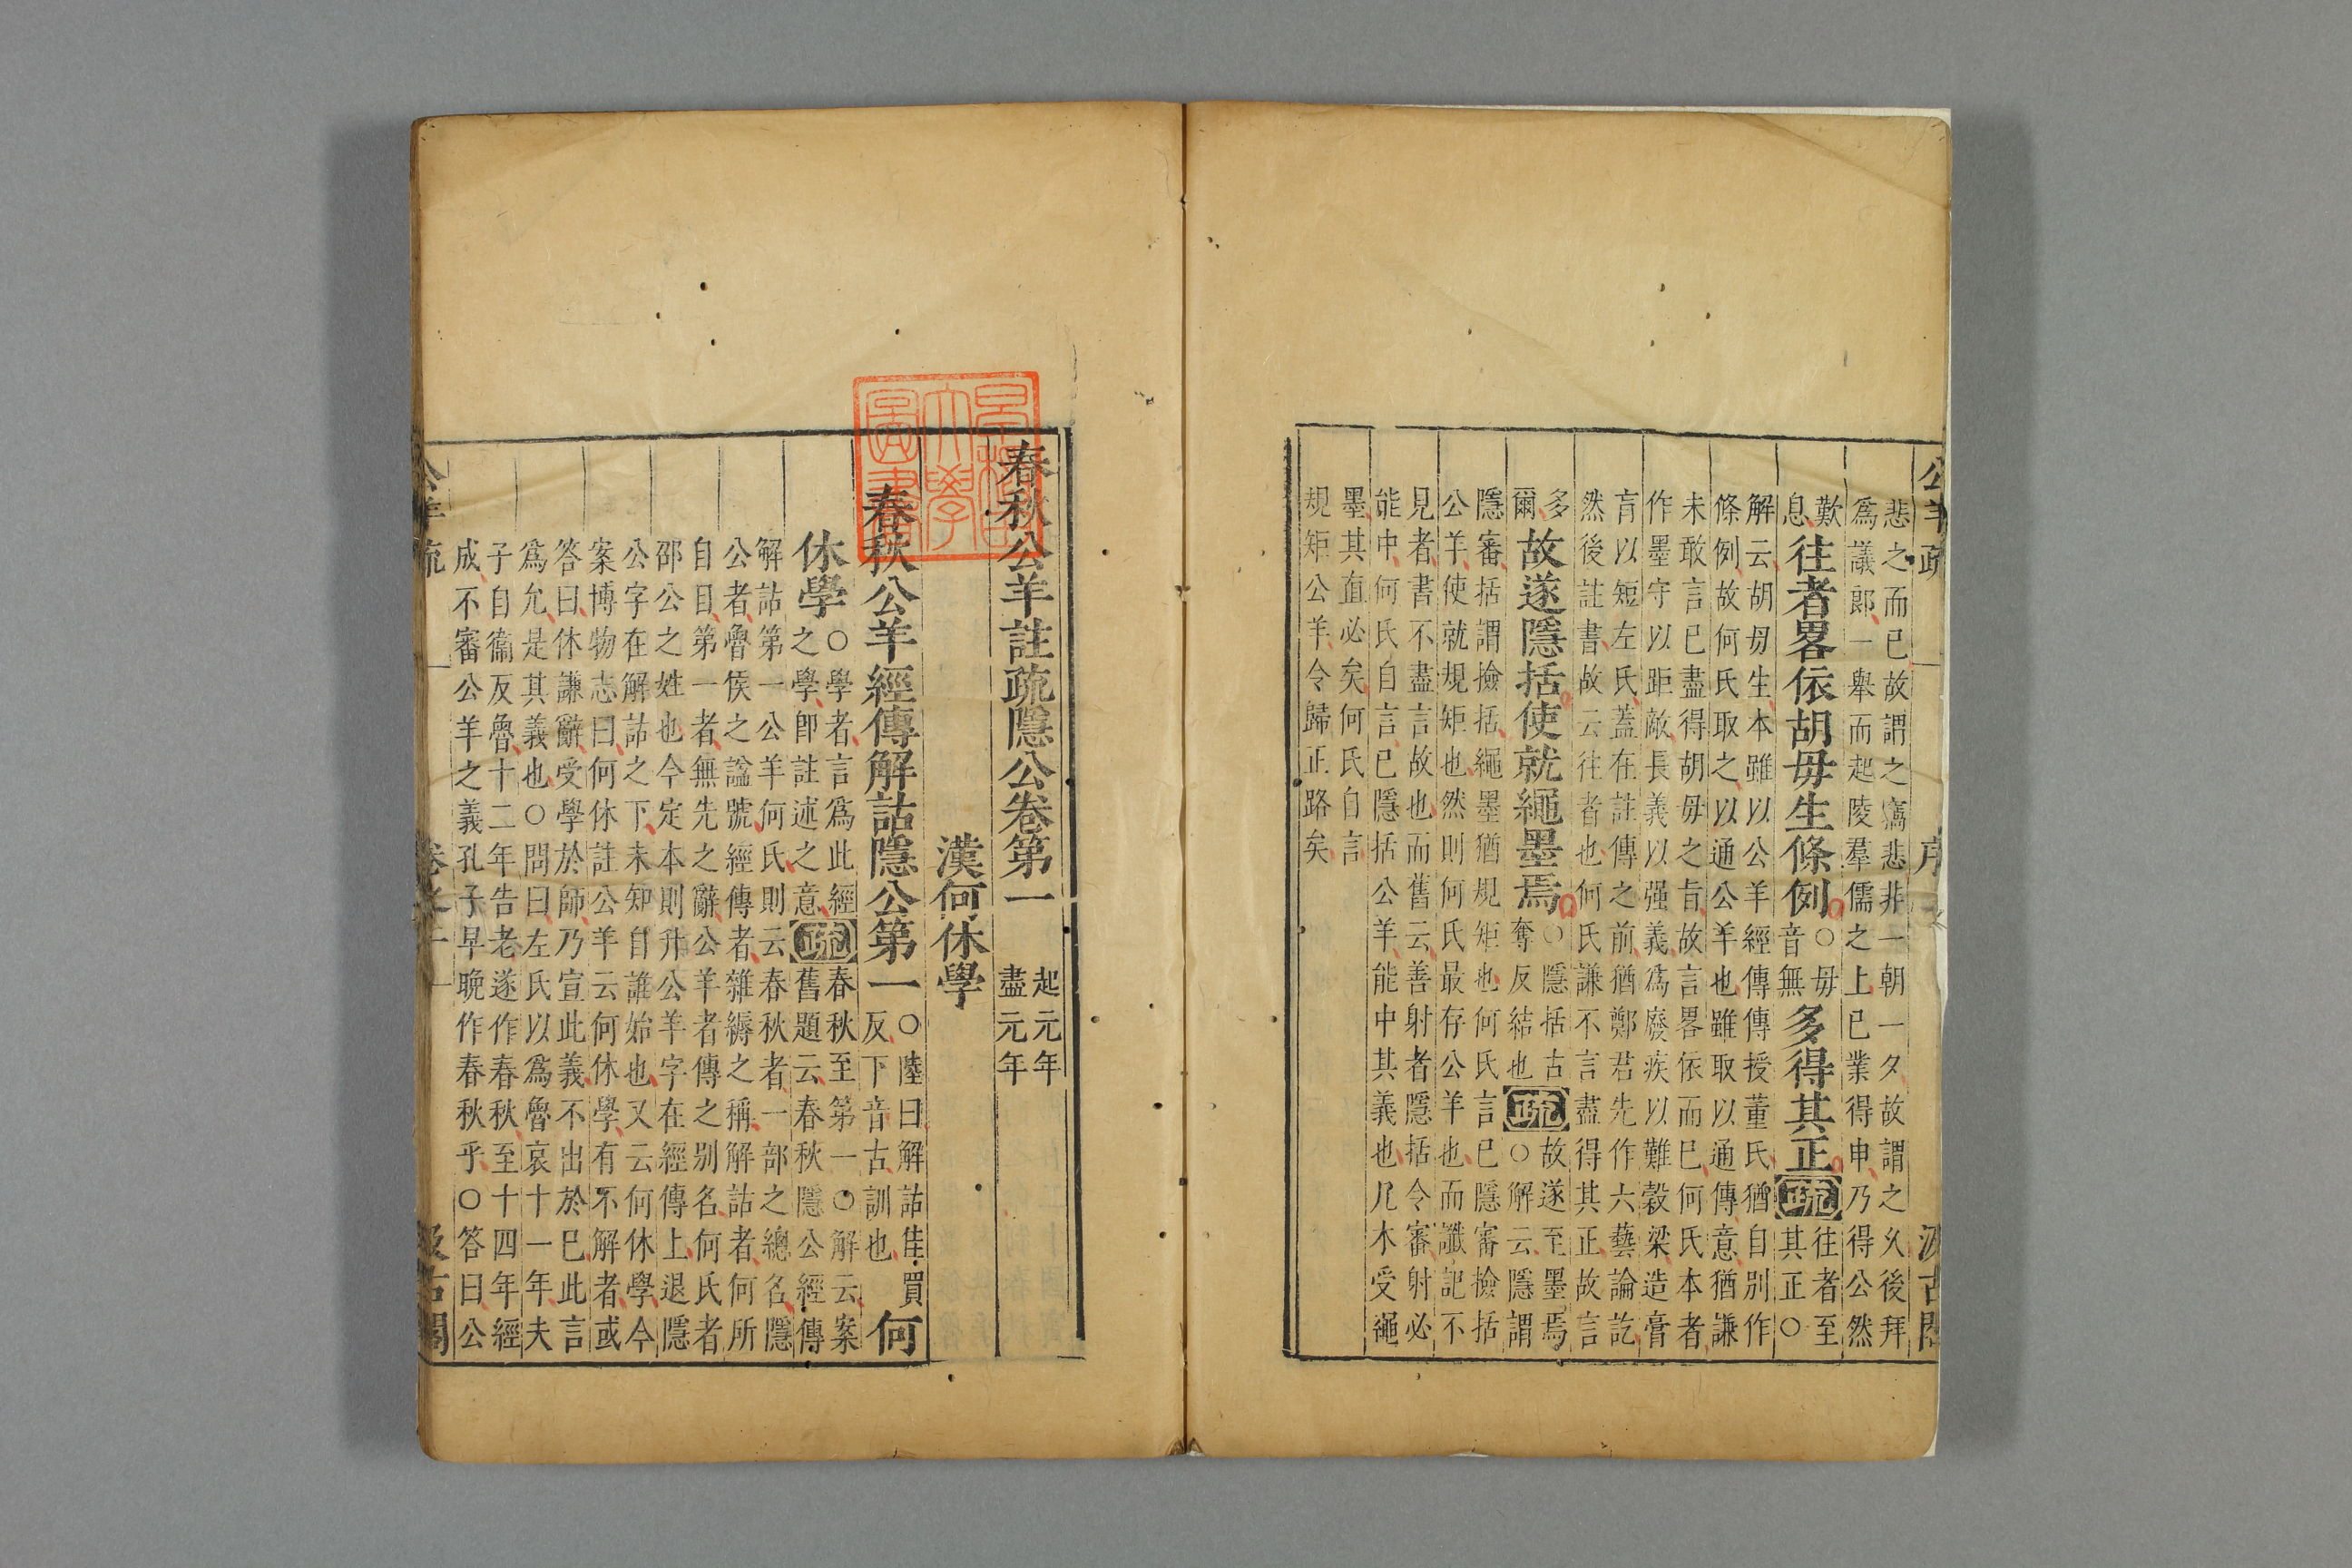 公羊疏 序 汲古閣
悲之而已故謂之窩悲非一朝一夕故謂之久後拜
爲議郎一舉而起陵羣儒之上已業得申乃得公然
歎
息
往者畧依胡毋生條例
○毋
音無
多得其正
疏
往者至
其正○
解云胡毋生本雖以公羊經傳傳授董氏猶自別作
條例故何氏取之以通公羊也雖取以通傳意猶謙
未敢言已盡得胡毋之旨故言畧依而已何氏本者
作墨守以距敵長義以强義爲廢疾以難穀梁造膏
肓以短左氏蓋在註傳之前猶鄭君先作六藝論訖
然後註書故云往者也何氏謙不言盡得其正故言
多
爾
故遂隱括使就繩墨焉
○隱括古
奪反結也
疏
故遂至墨焉
○解云隱謂
隱審括謂撿括繩墨猶規矩也何氏言已隱審撿括
公羊使就規矩也然則何氏最存公羊也而讖記不
見者書不盡言故也而舊云善射者隱括令審射必
能中何氏自言已隱括公羊能中其義也凡木受繩
墨其直必矣何氏自言
規矩公羊令歸正路矣
春秋公羊註疏隱公卷第一
起元年
盡元年
漢何休學
春秋公羊經傳解詁隱公第一
○陸曰解詁佳買
反下音古訓也
何
休學
○學者言爲此經
之學即註述之意
疏
春秋至第一○解云案
舊題云春秋隱公經傳
解詁第一公羊何氏則云春秋者一部之總名隱
公者魯侯之謚號經傳者雜縟之稱解詁者何所
自目第一者無先之辭公羊者傳之別名何氏者
邵公之姓也今定本則升公羊字在經傳上退隱
公字在解詁之下未知自誰始也又云何休學今
案博物志曰何休註公羊云何休學有不解者或
答曰休謙辭受學於師乃宣此義不出於已此言
爲允是其義也○問曰左氏以爲魯哀十一年夫
子自衞反魯十二年告老遂作春秋至十四年經
成不審公羊之義孔子早晚作春秋乎○答曰公
公羊疏 卷之一 一 汲古閣